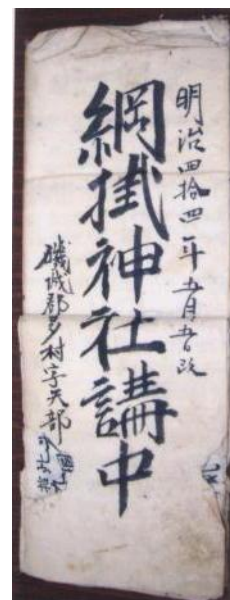 明治四拾四年五月吉日改
綱掛神社講中
磯城郡多村字矢部